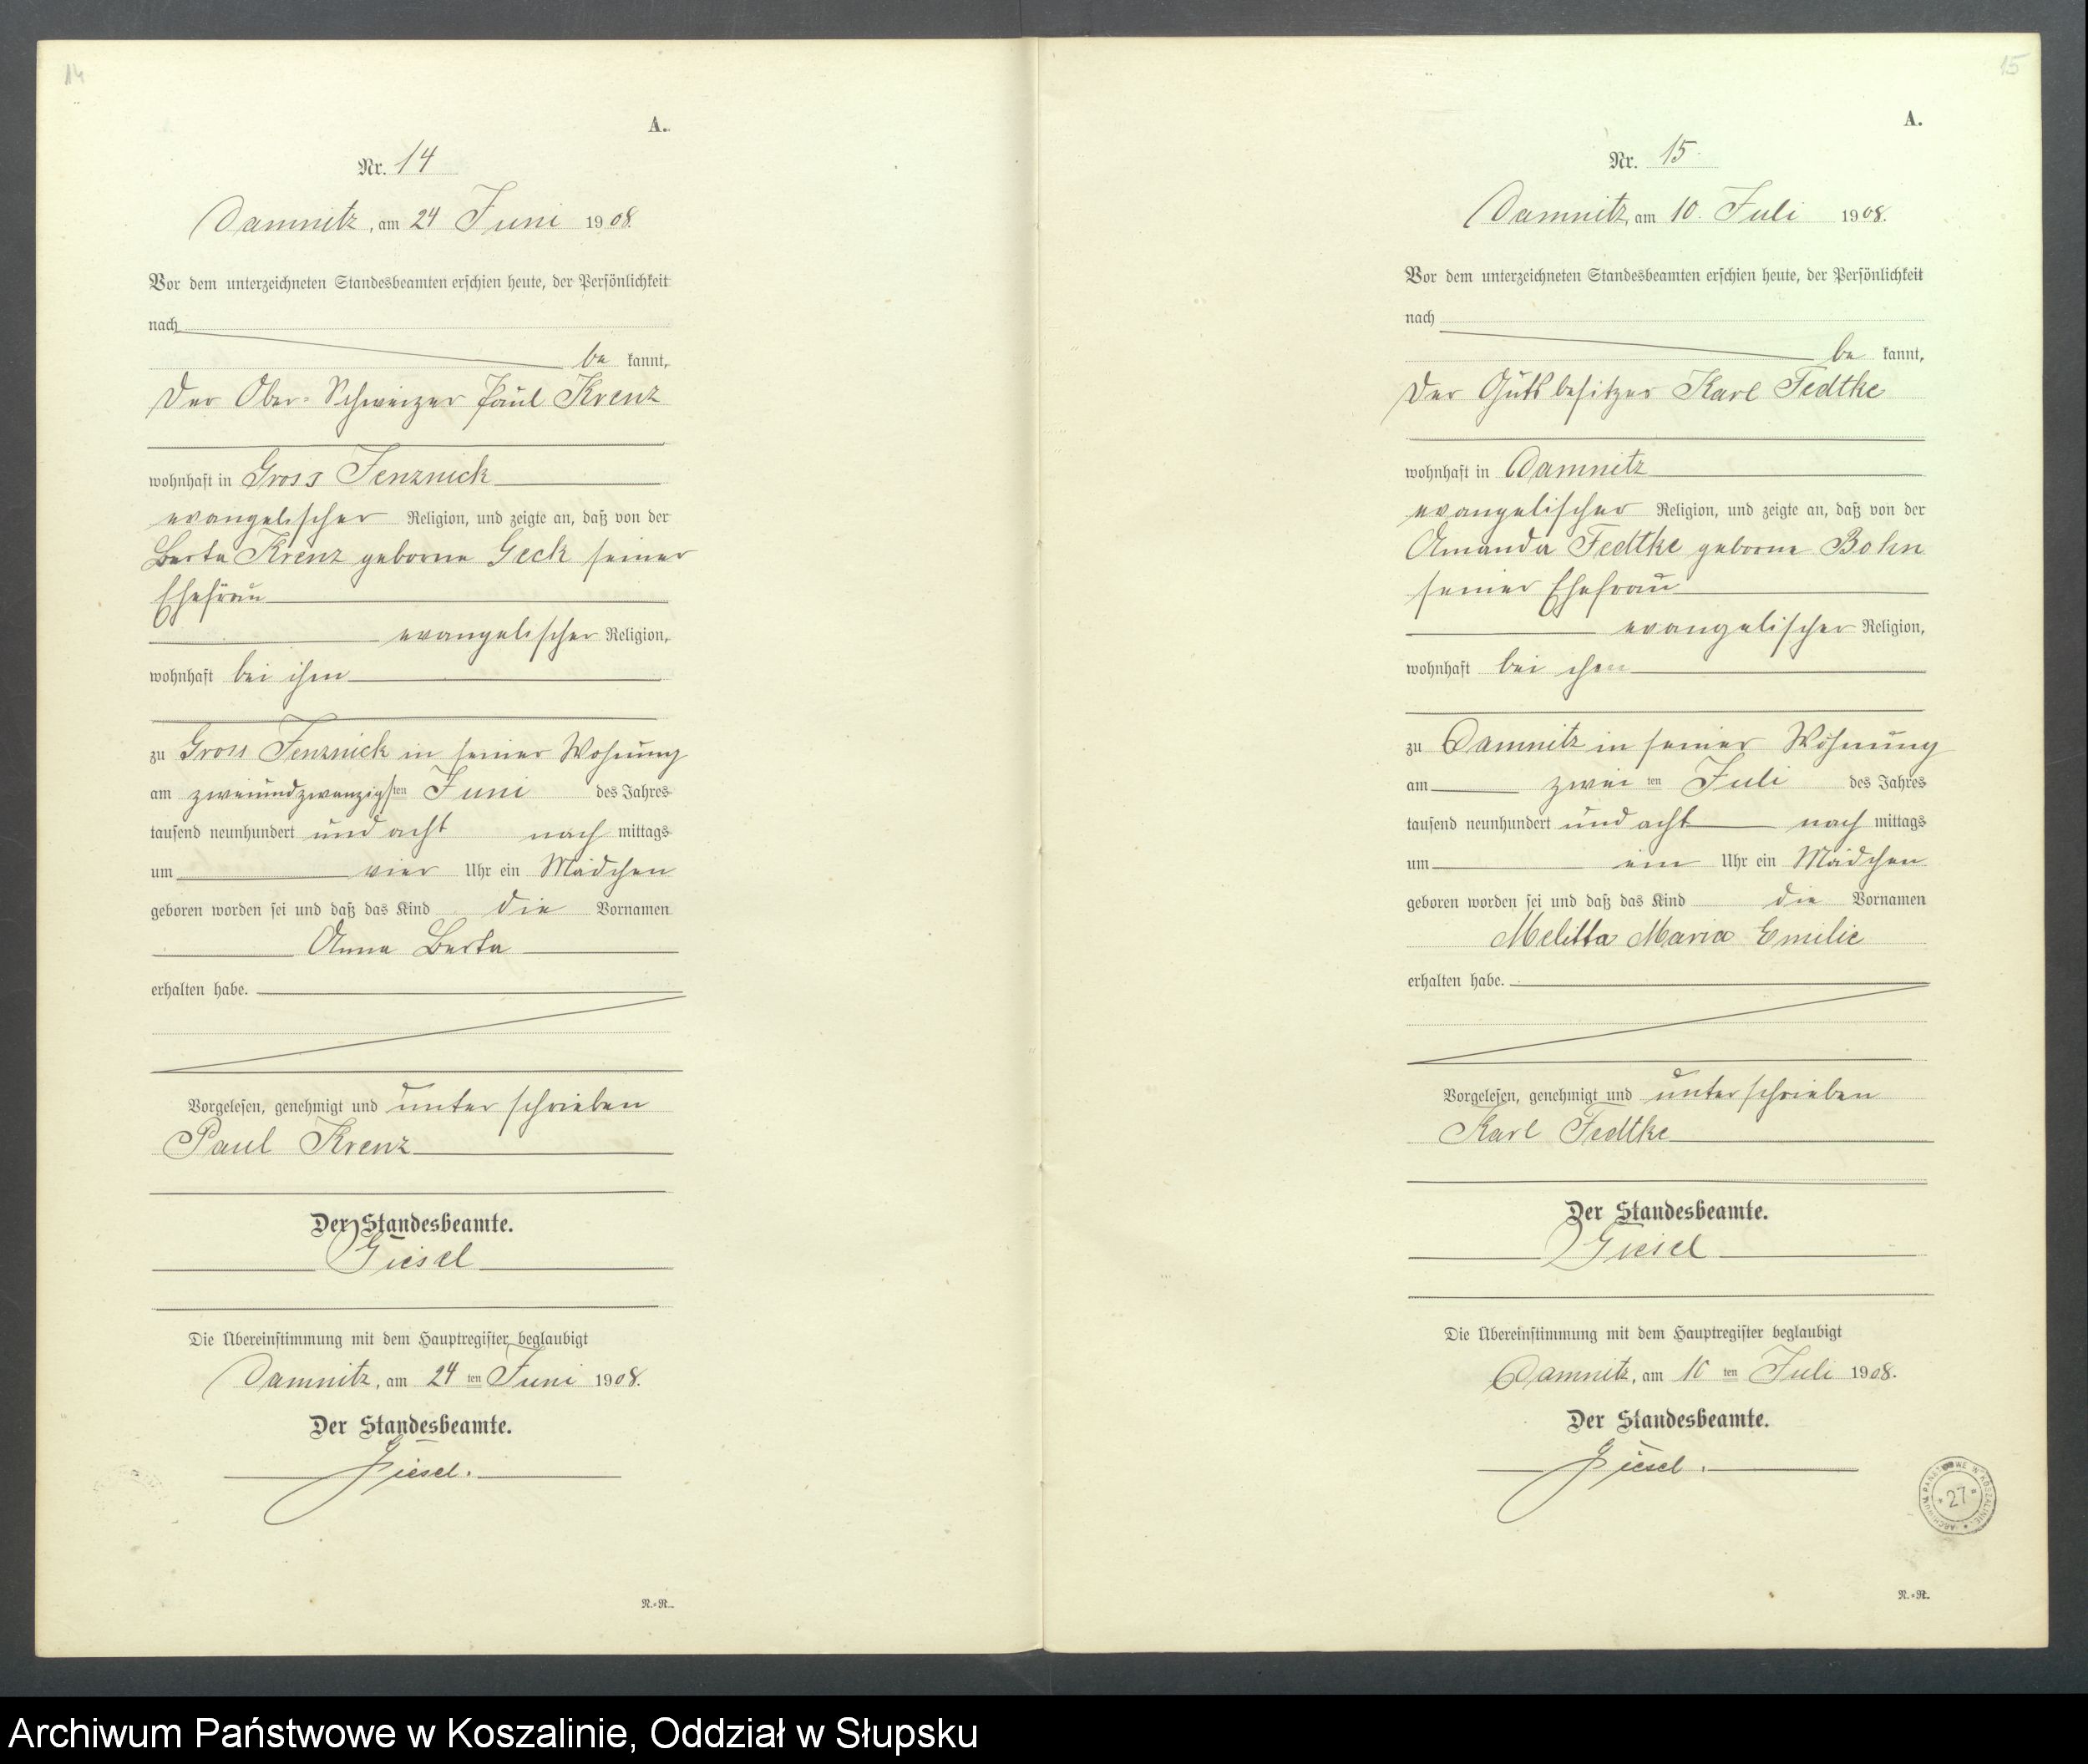 14
A.
Nr. 14
Damnitz, am 24 Juni 1908.
Vor dem unterzeichneten Standesbeamten erschien heute, der Persönlichkeit
nach
be kannt,
Der Ober-Schweizer Paul Krenz
wohnhaft in Gross Jenznick
evangelischer Religion, und zeigte an, daß von der
Berta Krenz geborne Geck seiner
Ehefrau
evangelischer Religion,
wohnhaft bei ihm
zu Gross Jenznick in seiner Wohnung
am zweiundzwanzigsten Juni des Jahres
tausend neunhundert und acht nach mittags
um vier Uhr ein Mädchen
geboren worden sei und daß das Kind die Vornamen
Anna Berta
erhalten habe.
Vorgelesen, genehmigt und unterschrieben
Paul Krenz
Der Standesbeamte.
Giesel
Die Übereinstimmung mit dem Hauptregister beglaubigt
Damnitz, am 24 ten Juni 1908.
Der Standesbeamte.
Giesel.
R.-R.
15
A.
Nr. 15.
Damnitz, am 10. Juli 1908.
Vor dem unterzeichneten Standesbeamten erschien heute, der Persönlichkeit
nach
be kannt,
Der Gutsbesitzer Karl Fedtke
wohnhaft in Damnitz
evangelischer Religion, und zeigte an, daß von der
Amanda Fedtke geborne Bohn
seiner Ehefrau
evangelischer Religion,
wohnhaft bei ihm
zu Damnitz in seiner Wohnung
am zwei ten Juli des Jahres
tausend neunhundert und acht nach mittags
um ein Uhr ein Mädchen
geboren worden sei und daß das Kind die Vornamen
Melitta Maria Emilie
erhalten habe.
Vorgelesen, genehmigt und unterschrieben
Karl Fedtke
Der Standesbeamte.
Giesel
Die Übereinstimmung mit dem Hauptregister beglaubigt
Damnitz, am 10 ten Juli 1908.
Der Standesbeamte.
Giesel.
ARCHIWUM PAŃSTWOWE W KOSZALINIE
27
R.-R.
Archiwum Państwowe w Koszalinie, Oddział w Słupsku